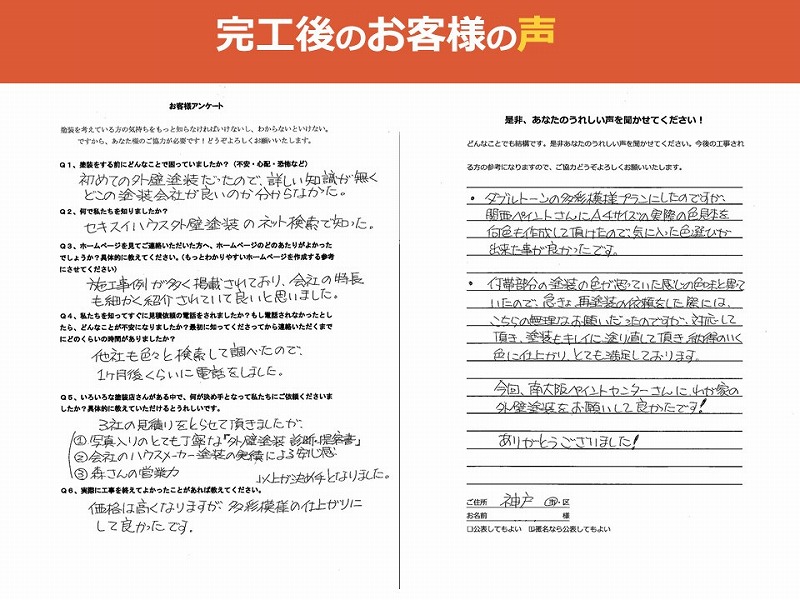 完工後のお客様の声
お客様アンケート
塗装を考えている方の気持ちをもっと知らなければいけないし、わからないといけない。
ですから、あなた様のご協力が必要です！どうぞよろしくお願いいたします。
Q1、塗装をする前にどんなことで困っていましたか？（不安・心配・恐怖など）
初めての外壁塗装だったので、詳しい知識が無く
どこの塗装会社が良いのか分からなかった。
Q2、何で私たちを知りましたか？
セキスイハウス外壁塗装のネット検索で知った。
Q3、ホームページを見てご連絡いただいた方へ、ホームページのどのあたりがよかった
でしょうか？具体的に教えてください。（もっとわかりやすいホームページを作成する参考
にさせてください）
施工事例が多く掲載されており、会社の特長
も細かく紹介されていて良いと思いました。
Q4、私たちを知ってすぐに見積依頼の電話をされましたか？もし電話されなかったとし
たら、どんなことが不安になりましたか？最初に知ってくださってから連絡いただくまで
にどのくらいの時間がありましたか？
他社も色々と検索して調べたので、
1ヶ月後くらいに電話をしました。
Q5、いろいろな塗装店さんがある中で、何が決め手となって私たちにご依頼くださいま
したか？具体的に教えていただけるとうれしいです。
3社の見積りをとらせて頂きましたが、
①写真入りのとても丁寧な『外壁塗装 診断・提案書』
②会社のハウスメーカー塗装の実績による安心感
③森さんの営業力
以上が決め手となりました。
Q6、実際に工事を終えてよかったことがあれば教えてください。
価格は高くなりますが、多彩模様の仕上がりに
して良かったです。
是非、あなたのうれしい声を聞かせてください！
どんなことでも結構です。是非あなたのうれしい声を聞かせてください。今後の工事され
る方の参考になりますので、ご協力どうぞよろしくお願いいたします。
・ダブルトーンの多彩模様プランにしたのですが、
関西ペイントさんにA4サイズの実際の色見本を
何色も作成して頂けたので、気に入った色選びが
出来た事が良かったです。
・付帯部分の塗装の色が思っていた感じの色味と違っ
ていたので、急きょ再塗装の依頼をした際には、
こちらの無理なお願いだったのですが、対応して
頂き、塗装もキレイに塗り直して頂き、納得のいく
色に仕上がり、とても満足しております。
今回、南大阪ペイントセンターさんに、わが家の
外壁塗装をお願いして良かったです！
ありがとうございました！
ご住所 神戸 市・区
お名前 様
□公表してもよい ☑匿名なら公表してもよい